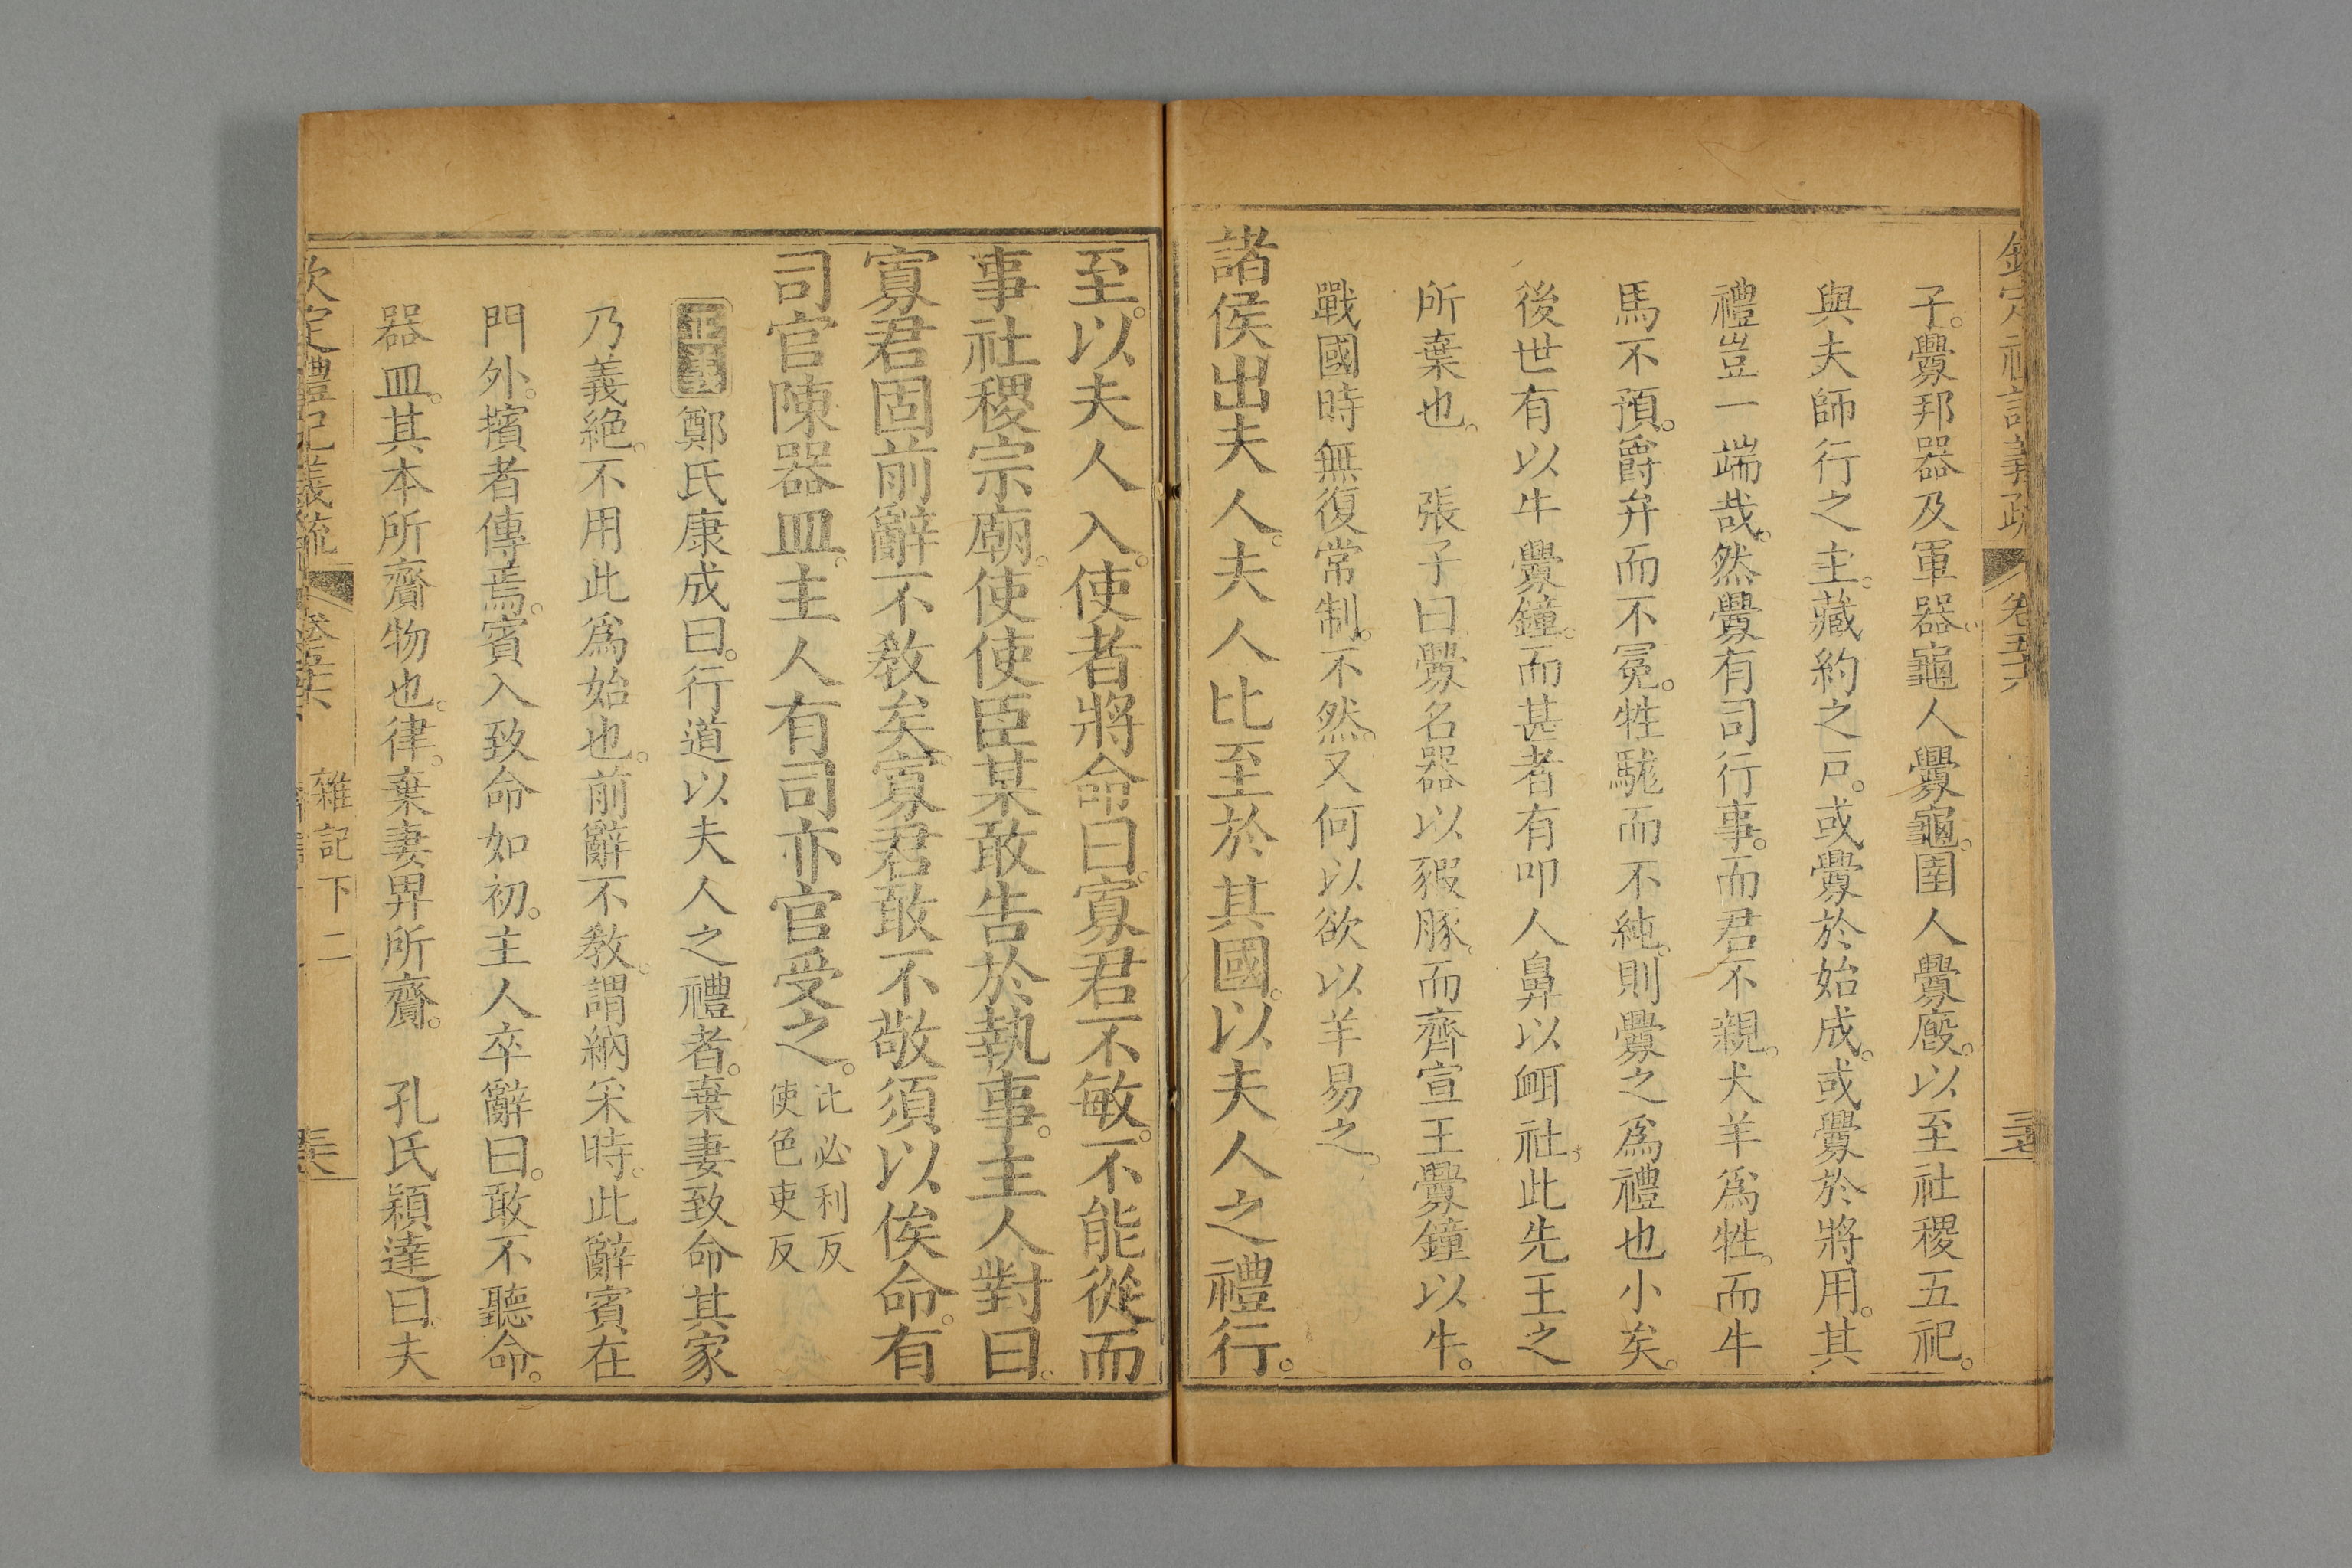 子。釁邦器及軍器。龜人釁龜。圉人釁廄。以至社稷五祀。
與夫師行之主。藏約之戸。或釁於始成。或釁於將用。其
禮豈一端哉。然釁有司行事。而君不親。犬羊爲牲。而牛
馬不預。爵弁而不冕。牲駹而不純。則釁之爲禮也小矣。
後世有以牛釁鐘。而甚者有叩人鼻以衈社。此先王之
所棄也。　張子曰釁名器以豭豚。而齊宣王釁鐘以牛。
戰國時無復常制。不然。又何以欲以羊易之。
諸侯出夫人。夫人比至於其國。以夫人之禮行。
至。以夫人入。使者將命曰。寡君不敏。不能從而
事社稷宗廟。使使臣某敢告於執事。主人對曰。
寡君固前辭不教矣。寡君敢不敬須以俟命。有
司官陳器皿。主人有司亦官受之。比必利反
使色吏反
鄭氏康成曰。行道以夫人之禮者。棄妻致命其家
乃義絶。不用此爲始也。前辭不教。謂納采時。此辭賓在
門外。擯者傳焉。賓入致命如初。主人卒辭曰。敢不聽命。
器皿。其本所齎物也。律。棄妻畀所齎。　孔氏穎達曰。夫
欽定禮記義疏
雜記下二